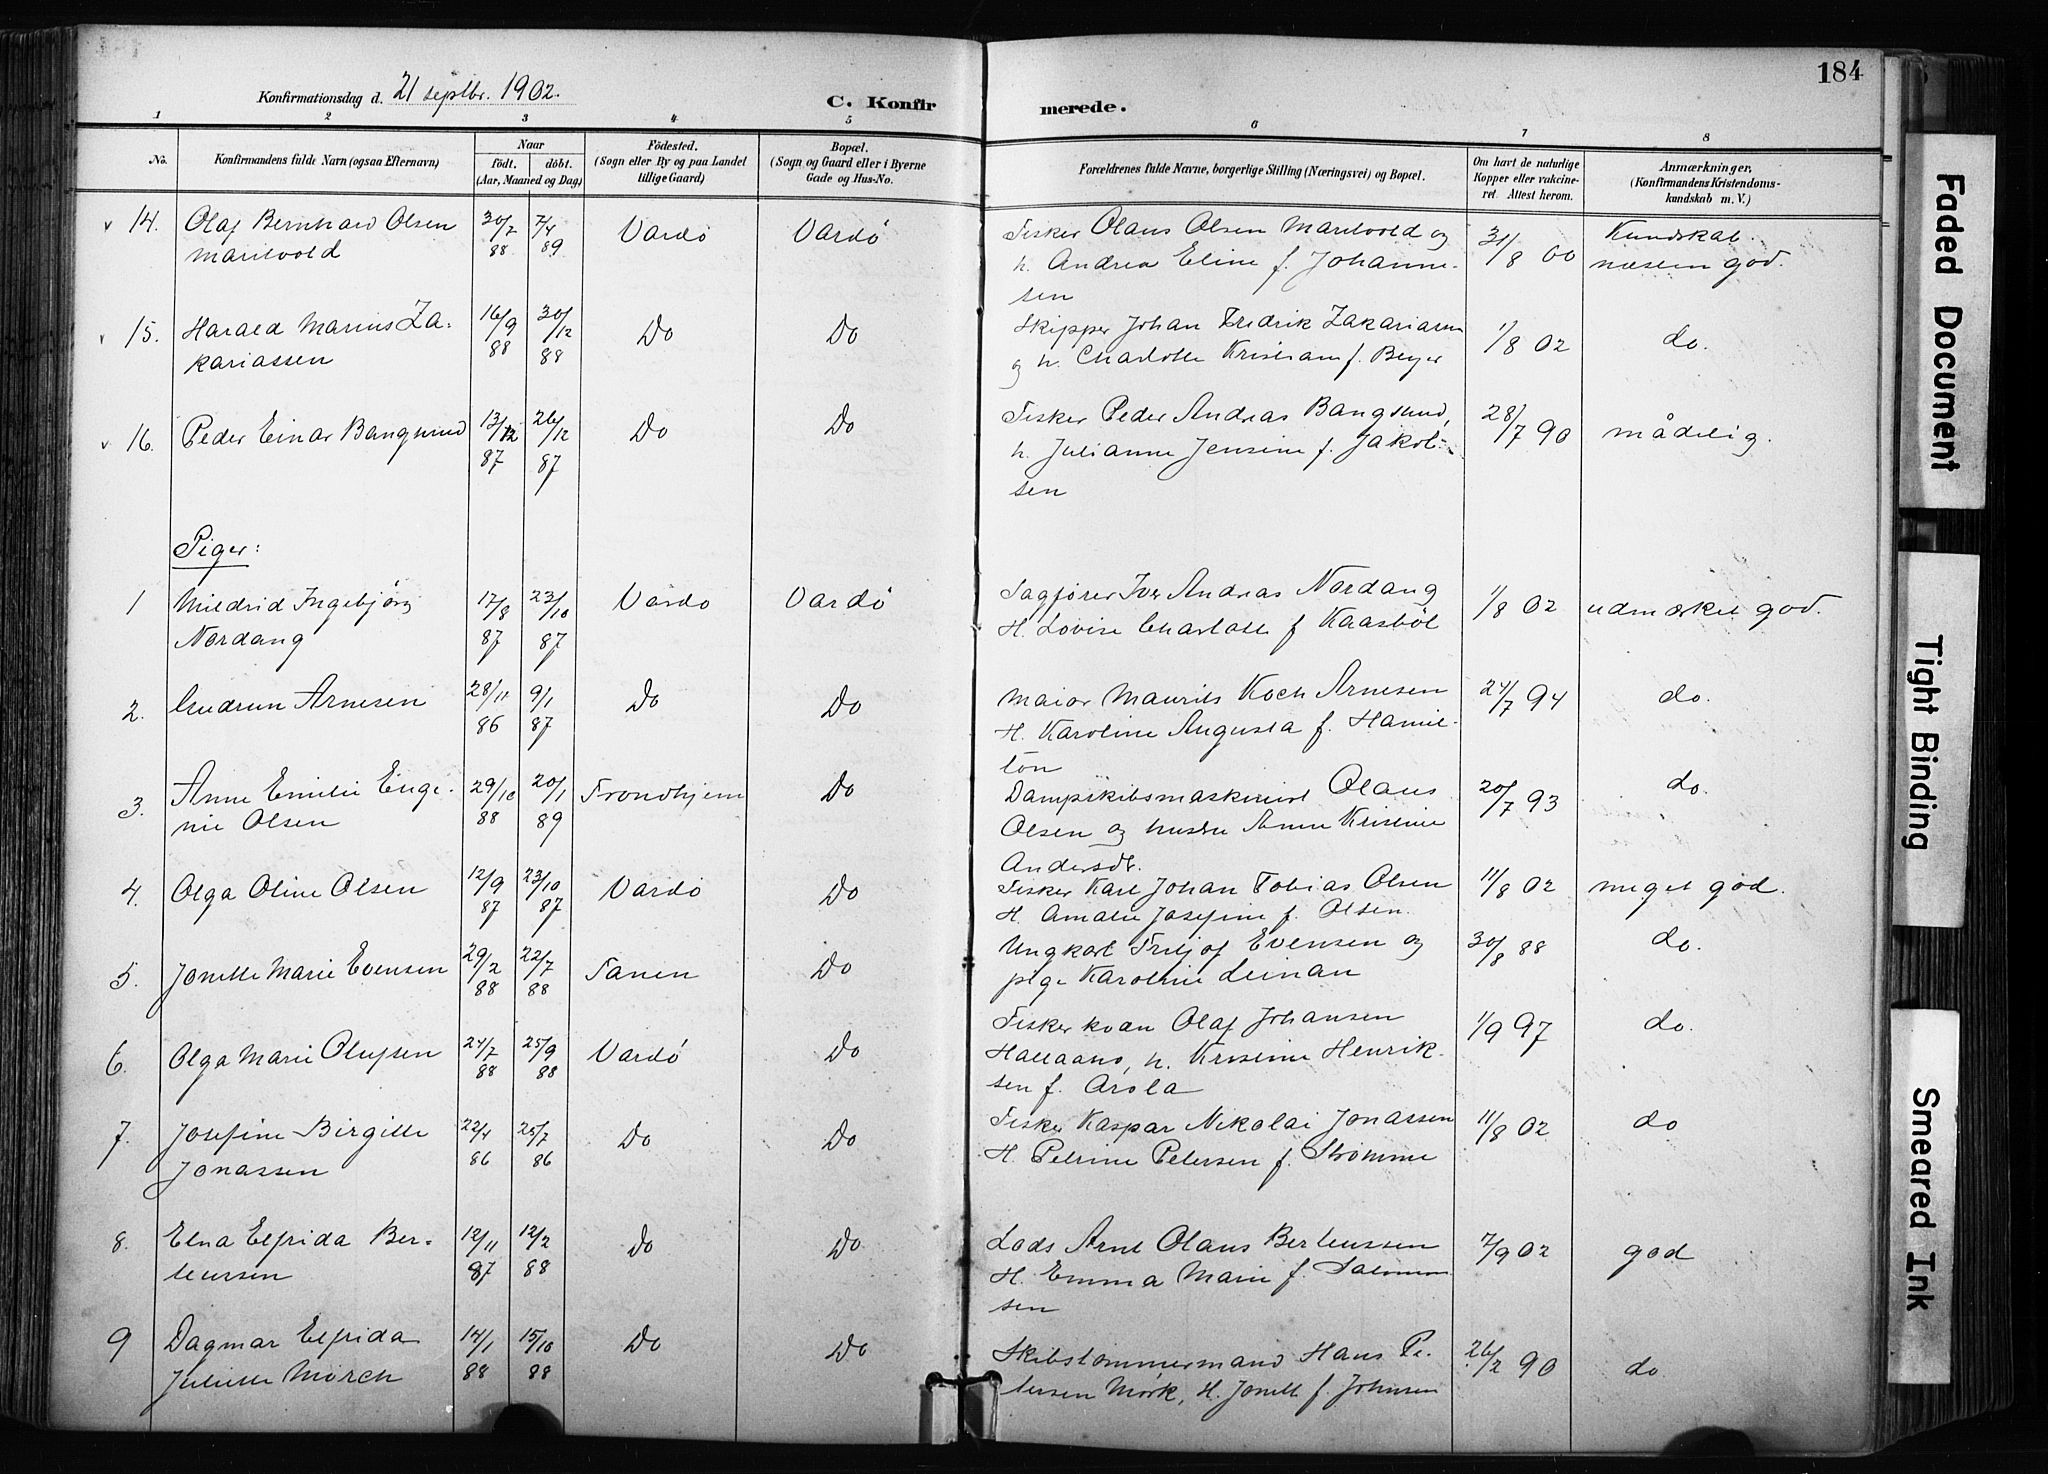 184
Konfirmationsdag d. 21 septbr. 1902.
C. Konfirmerede.
1 2 3 4 5 6 7 8
No.
Konfirmandens fulde Navn (ogsaa Efternavn)
Naar
födt. döbt.
(Aar, Maaned og Dag)
Födested.
(Sogn eller By og paa Landet
tillige Gaard)
Bopæl.
(Sogn og Gaard eller i Byerne
Gade og Hus-No.
Forældrenes fulde Navne, borgerlige Stilling (Næringsvei) og Bopæl.
Om havt de naturlige
Kopper eller vakcine-
ret. Attest herom.
Anmærkninger,
(Konfirmandens Kristendoms-
kundskab m. V.)
v 14. Olaf Bernhard Olsen 30/7 7/4 Vardø Vardø Fisker Olaus Olsen Maritvold og 31/8 00 Kundskab
Maritvold 88 89 h. Andrea Eline f. Johanne- næsten god.
sen
v 15. Harald Marius Za- 16/9 30/12 Do Do Skipper Johan Fredrik Zakariassen 1/8 02 do.
kariassen 88 88 og h. Charlotte Kristiane f. Beyer
v 16. Peder Einar Bangsund 13/12 26/12 Do Do Fisker Peder Andreas Bangsund, 28/7 90 mådelig.
87 87 h. Julianne Jensine f. Jakob-
sen
Piger:
1 Mildrid Ingebjørg 17/8 23/10 Vardø Vardø Sagfører Iver Andreas Nordang 1/8 02 udmærket god.
Nordang 87 87 H. Lovise Charlotte f Kaasbøl
2. Gudrun Arnesen 28/11 9/1 Do Do Maior Maurits Koch Arnesen 24/7 94 do.
86 87 H. Karoline Augusta f. Hamil-
ton
3. Anne Emilie Euge- 29/10 20/1 Trondhjem Do Dampskibsmaskinist Olaus 20/7 93 do.
nie Olsen 88 89 Olsen og hustru Anne Kristine
Andersdt.
4. Olga Oline Olsen 12/9 23/10 Vardø Do Fisker Karl Johan Tobias Olsen 11/8 02 meget god.
87 87 H. Amalie Josefine f. Olsen.
5. Jonette Marie Evensen 29/2 22/7 Tanen Do Ungkarl Fritjof Evensen og 30/8 88 do.
88 88 pige Karoline Leinan
6. Olga Marie Olufsen 24/7 25/9 Vardø Do Fisker kvæn Olaf Johansen 1/9 97 do.
88 88 h. Kristine Henrik-
sen f. Arola
7. Josefine Birgitte 22/4 25/7 Do Do Fisker Kaspar Nikolai Jonassen 11/8 02 do
Jonassen 86 86 H. Petrine Petersen f. Strømme
8. Elna Elfrida Ber- 12/11 12/2 Do Do Lods Arnt Olaus Berteussen 7/9 02 god
teussen 87 88 H. Emma Marie f. Salomon
sen
9 Dagmar Elfrida 14/1 15/10 Do Do Skibstømmermand Hans Pe- 26/2 90 do
Juliette Mørch 88 88 tersen Mørk, H. Jonette f. Johnsen
Faded Document
Tight Binding
Smeared Ink